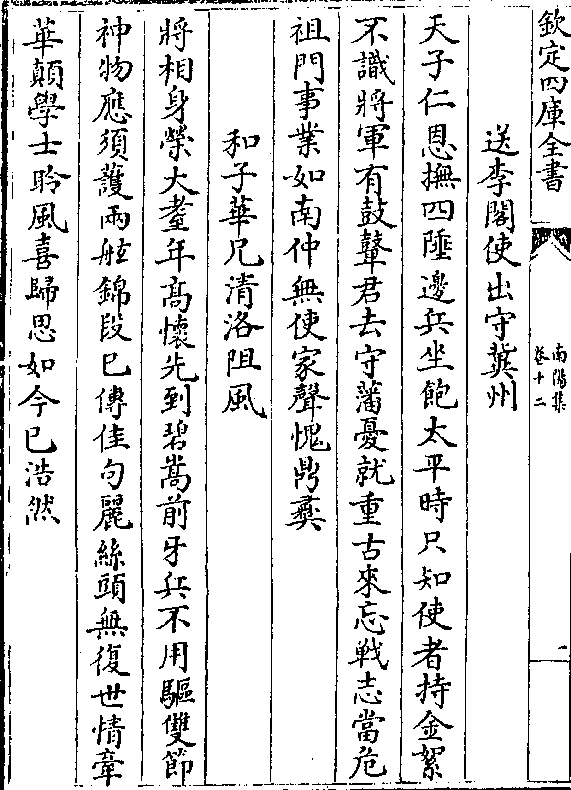 欽定四庫全書
南陽集
卷十二
送李閣使出守冀州
天子仁恩撫四陲邊兵坐飽太平時只知使者持金絮
不識將軍有鼓鼙君去守藩憂就重古來忘戰志當危
祖門事業如南仲無使家聲愧鼎彝
和子華兄清洛阻風
將相身榮大耋年髙懷先到碧嵩前牙兵不用驅雙節
神物應須䕶兩舷錦段已傳佳句麗絲頭無復世情牽
華顛學士聆風喜歸思如今已浩然